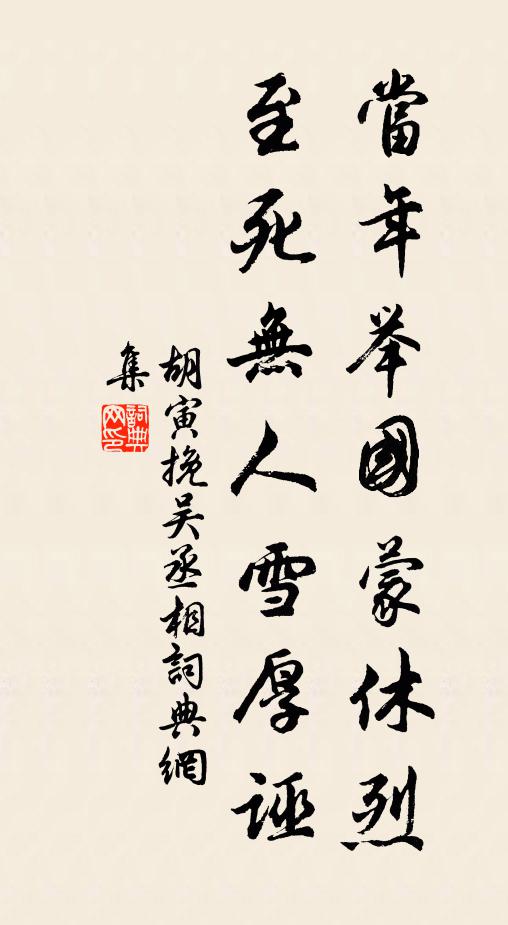 當年举國蒙休烈
至死無人雪厚誣
胡寅挽吴丞相詞典網
集
詞典网印